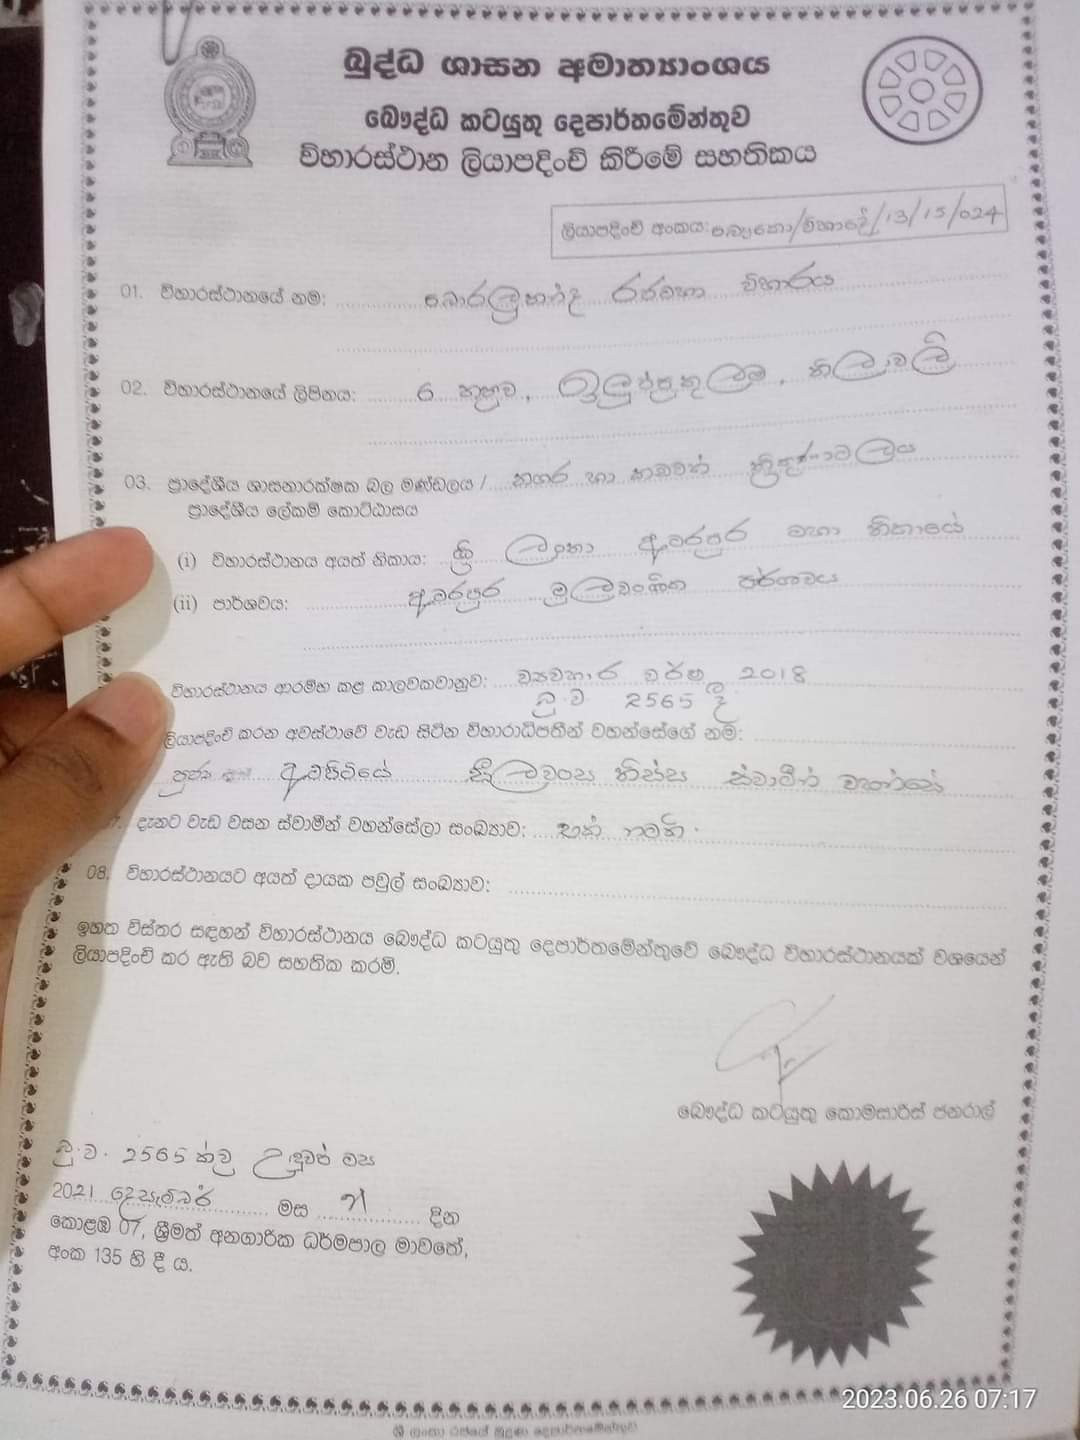 බුද්ධ ශාසන අමාත්‍යාංශය
බෞද්ධ කටයුතු දෙපාර්තමේන්තුව
විහාරස්ථාන ලියාපදිංචි කිරීමේ සහතිකය
ලියාපදිංචි අංකය: /13/15/024
01. විහාරස්ථානයේ නම: බොරලුකන්ද රජමහා විහාරය
02. විහාරස්ථානයේ ලිපිනය: 6 කණුව, ඉලුප්පකුලම, නිලාවැලි
03. ප්‍රාදේශීය ශාසනාරක්ෂක බල මණ්ඩලය / නගර හා කඩවත් ත්‍රිකුණාමලය
ප්‍රාදේශීය ලේකම් කොට්ඨාසය
(i) විහාරස්ථානය අයත් නිකාය: ශ්‍රී ලංකා අමරපුර මහා නිකායේ
(ii) පාර්ශවය: අමරපුර මූලවංශික පාර්ශවය
විහාරස්ථානය ආරම්භ කළ කාලවකවානුව: ව්‍යවහාර වර්ෂ 2018
බු.ව. 2565 දී
ලියාපදිංචි කරන අවස්ථාවේ වැඩ සිටින විහාරාධිපතීන් වහන්සේගේ නම්:
පූජ්‍ය සීලවංස තිස්ස ස්වාමීන් වහන්සේ
දැනට වැඩ වසන ස්වාමීන් වහන්සේලා සංඛ්‍යාව: එක් නමකි.
08. විහාරස්ථානයට අයත් දායක පවුල් සංඛ්‍යාව:
ඉහත විස්තර සඳහන් විහාරස්ථානය බෞද්ධ කටයුතු දෙපාර්තමේන්තුවේ බෞද්ධ විහාරස්ථානයක් වශයෙන්
ලියාපදිංචි කර ඇති බව සහතික කරමි.
බෞද්ධ කටයුතු කොමසාරිස් ජනරාල්
බු.ව. 2565 ක්වූ උඳුවප් මස
2021 දෙසැම්බර් මස දින
කොළඹ 07, ශ්‍රීමත් අනගාරික ධර්මපාල මාවතේ,
අංක 135 හි දී ය.
2023.06.26 07:17
ශ්‍රී ලංකා රජයේ මුද්‍රණ දෙපාර්තමේන්තුව